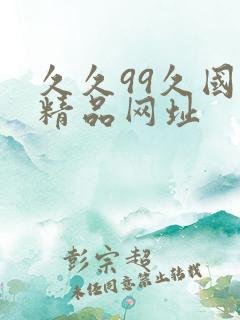 久久99久國
精品网址
彭宗超
未经同意禁止转载